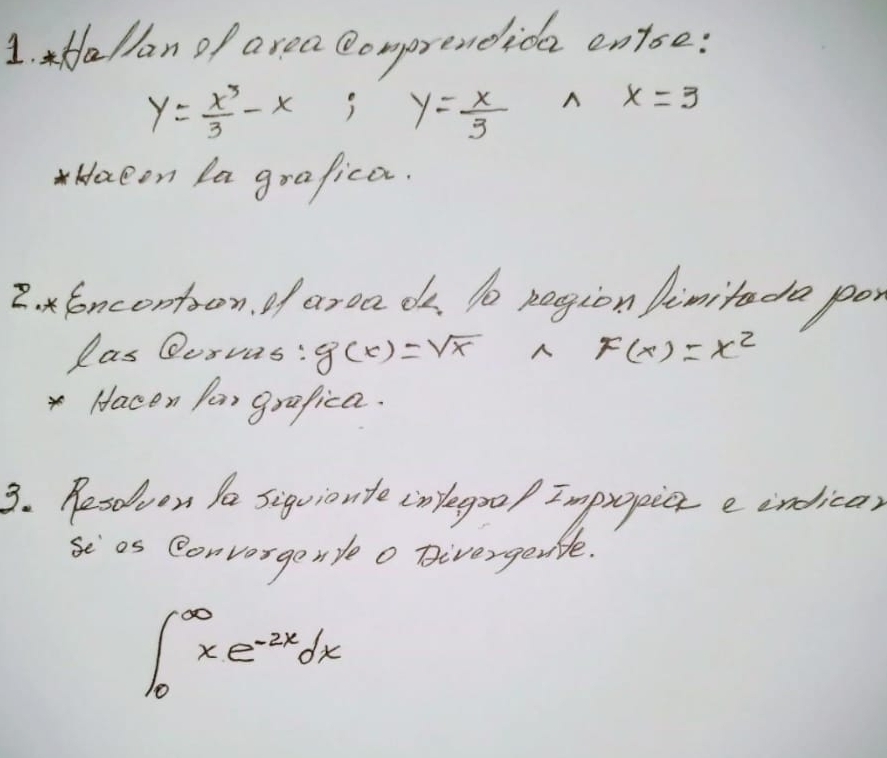 1. *Hallar el area comprendida entre:
y = x³/3 - x ; y = x/3 ∧ x = 3
*Hacer la grafica.
2.* Encontrar el area de la region limitada por
las Curvas: g(x) = √x ∧ F(x) = x²
* Hacer las grafica.
3. Resolver la siguiente integral Impropia e indicar
si es Convergente o Divergente.
∫₀^∞ x e^{-2x} dx